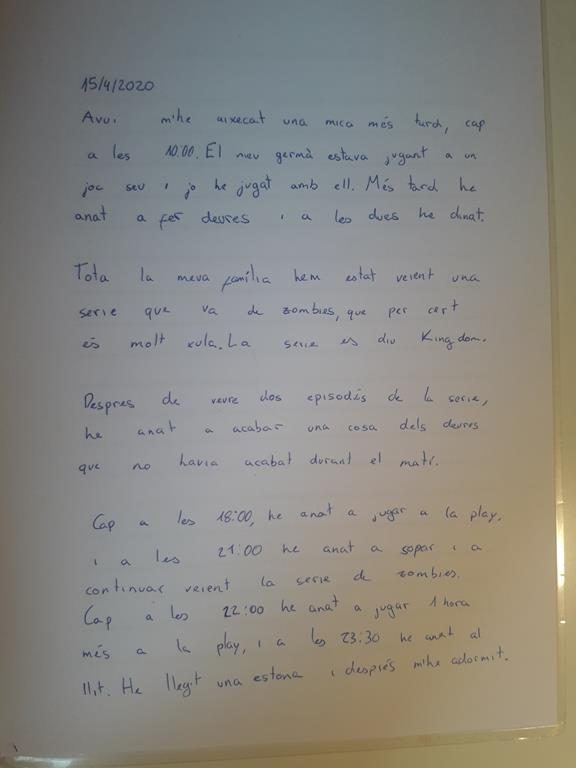 15/4/2020
Avui m'he aixecat una mica més tard, cap
a les 10:00. El meu germà estava jugant a un
joc seu i jo he jugat amb ell. Més tard he
anat a fer deures i a les dues he dinat.
Tota la meva família hem estat veient una
serie que va de zombies, que per cert
és molt xula. La serie es diu Kingdom.
Despres de veure dos episodis de la serie,
he anat a acabar una cosa dels deures
que no havia acabat durant el matí.
Cap a les 18:00, he anat a jugar a la play,
i a les 21:00 he anat a sopar i a
continuar veient la serie de zombies.
Cap a les 22:00 he anat a jugar 1 hora
més a la play, i a les 23:30 he anat al
llit. He llegit una estona i després m'he adormit.